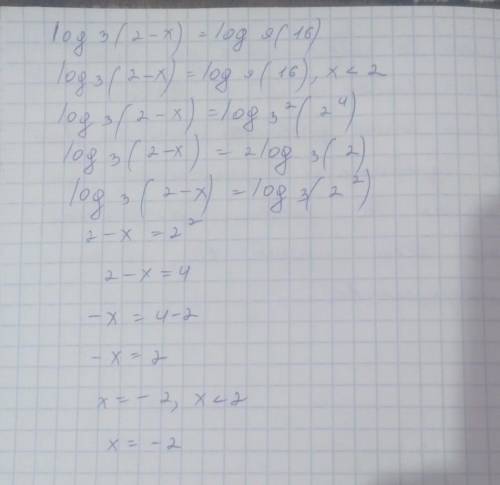 log 3 (2-x) = log 9 (16)
log 3 (2-x) = log 9 (16), x < 2
log 3 (2-x) = log 3² (2⁴)
log 3 (2-x) = 2 log 3 (2)
log 3 (2-x) = log 3 (2²)
2-x = 2²
2-x = 4
-x = 4-2
-x = 2
x = -2, x < 2
x = -2